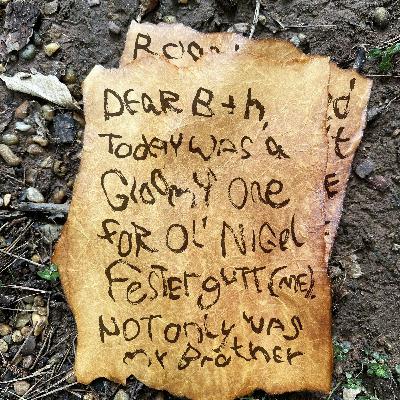 DEAR B+h,
TodAY WAS A
GlOOMY ONE
foR OL' NIGel
FESTErgutt (ME).
NOT only WAS
MY BrOther